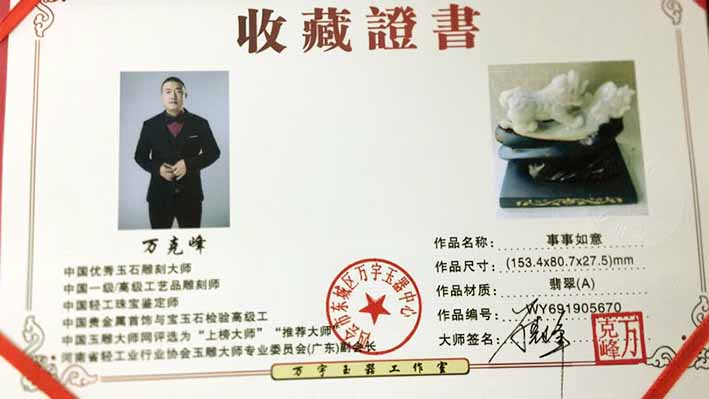 收藏證書
万克峰
中国优秀玉石雕刻大师
中国一级/高级工艺品雕刻师
中国轻工珠宝鉴定师
中国贵金属首饰与宝玉石检验高级工
中国玉雕大师网评选为“上榜大师”“推荐大师”
河南省轻工业行业协会玉雕大师专业委员会(广东)副会长
作品名称：事事如意
作品尺寸：(153.4x80.7x27.5)mm
作品材质：翡翠(A)
作品编号：WY691905670
大师签名：
万克峰
市东城区万字玉器中心
万字玉器工作室